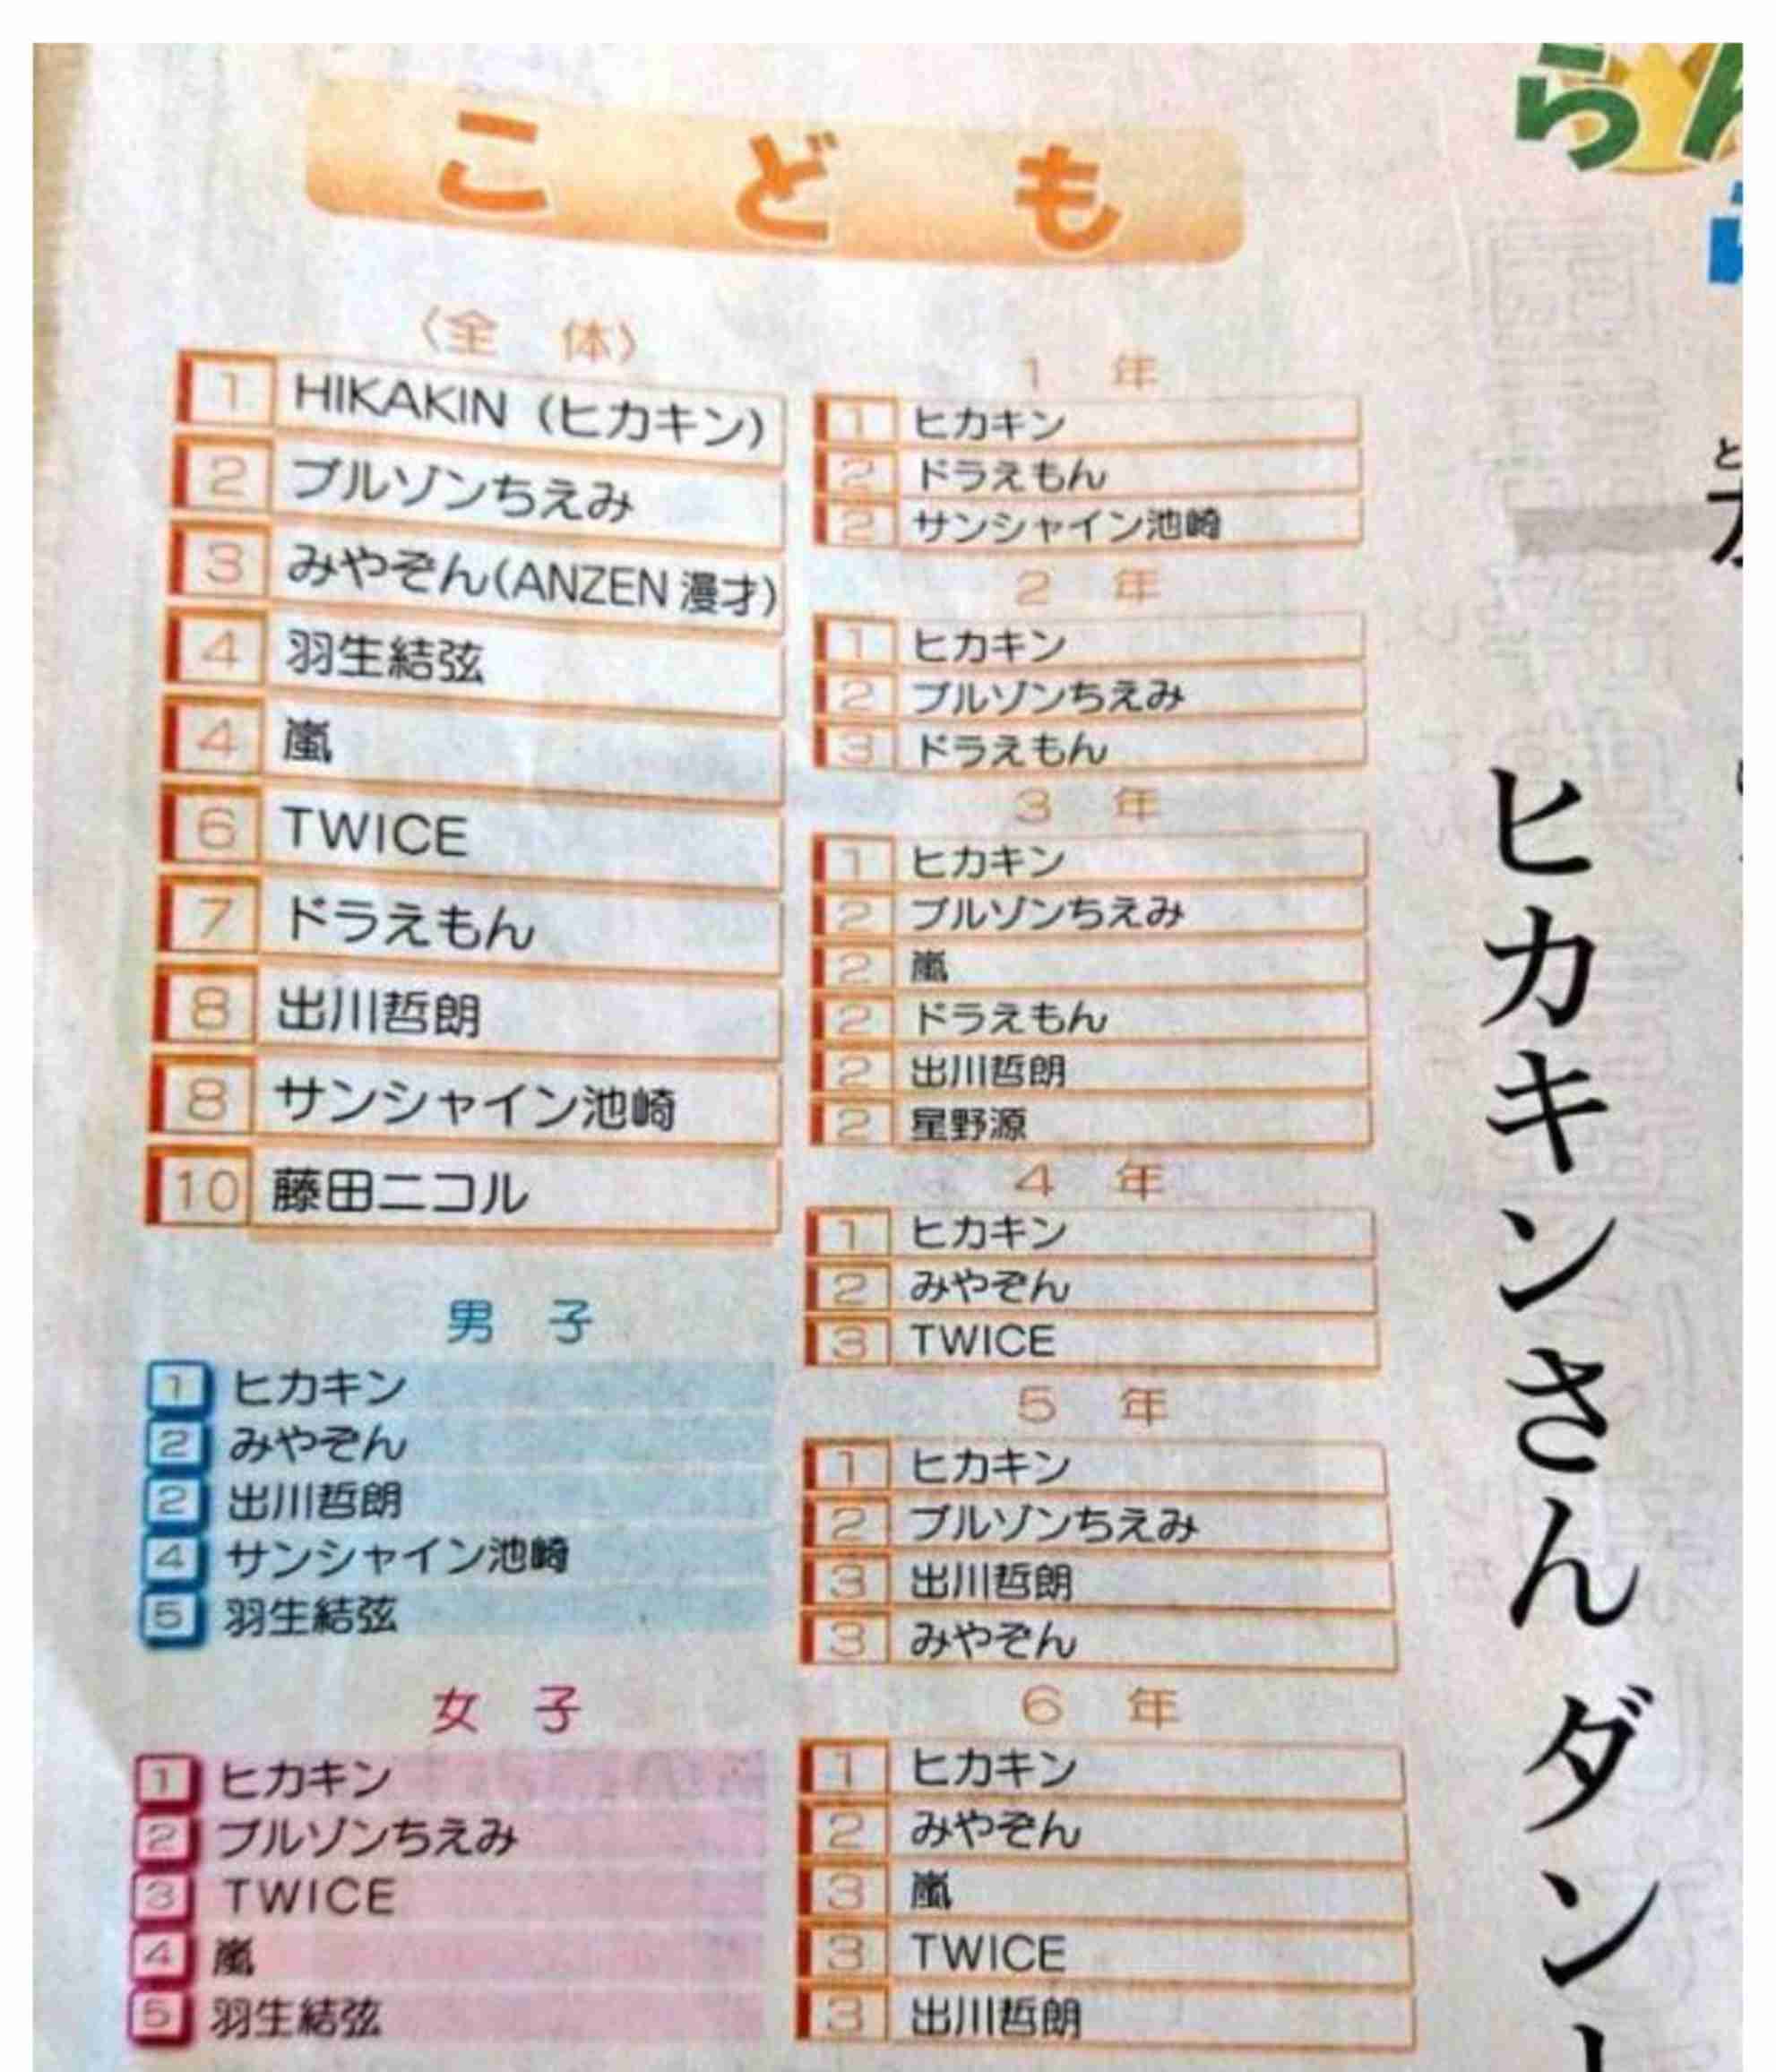 こども
〈全 体〉
1 HIKAKIN（ヒカキン）
2 ブルゾンちえみ
3 みやぞん(ANZEN漫才)
4 羽生結弦
4 嵐
6 TWICE
7 ドラえもん
8 出川哲朗
8 サンシャイン池崎
10 藤田ニコル
男 子
1 ヒカキン
2 みやぞん
2 出川哲朗
4 サンシャイン池崎
5 羽生結弦
女 子
1 ヒカキン
2 ブルゾンちえみ
3 TWICE
4 嵐
5 羽生結弦
1 年
1 ヒカキン
2 ドラえもん
2 サンシャイン池崎
2 年
1 ヒカキン
2 ブルゾンちえみ
3 ドラえもん
3 年
1 ヒカキン
2 ブルゾンちえみ
2 嵐
2 ドラえもん
2 出川哲朗
2 星野源
4 年
1 ヒカキン
2 みやぞん
3 TWICE
5 年
1 ヒカキン
2 ブルゾンちえみ
3 出川哲朗
3 みやぞん
6 年
1 ヒカキン
2 みやぞん
3 嵐
3 TWICE
3 出川哲朗
ヒカキンさん ダン
ら